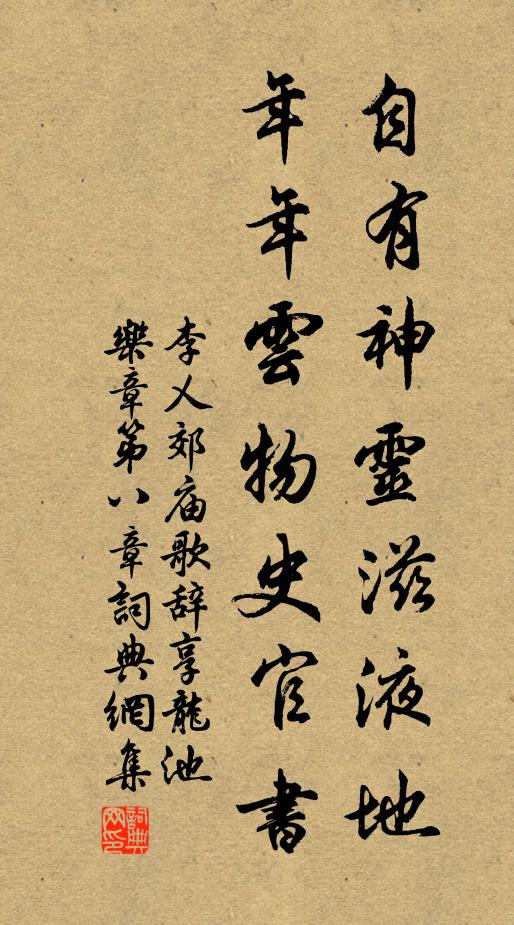 自有神靈滋液地
年年雲物史官書
李乂郊庙歌辞享龍池
樂章第八章詞典網集
詞典网印